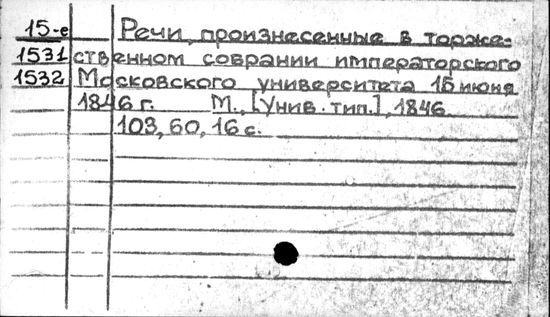 15-е Речи, произнесенные в торже-
1531 ственном собрании императорского
1532 Московского университета 15 июня
1846 г. М., [Унив. тип.], 1846.
103, 60, 16 с.